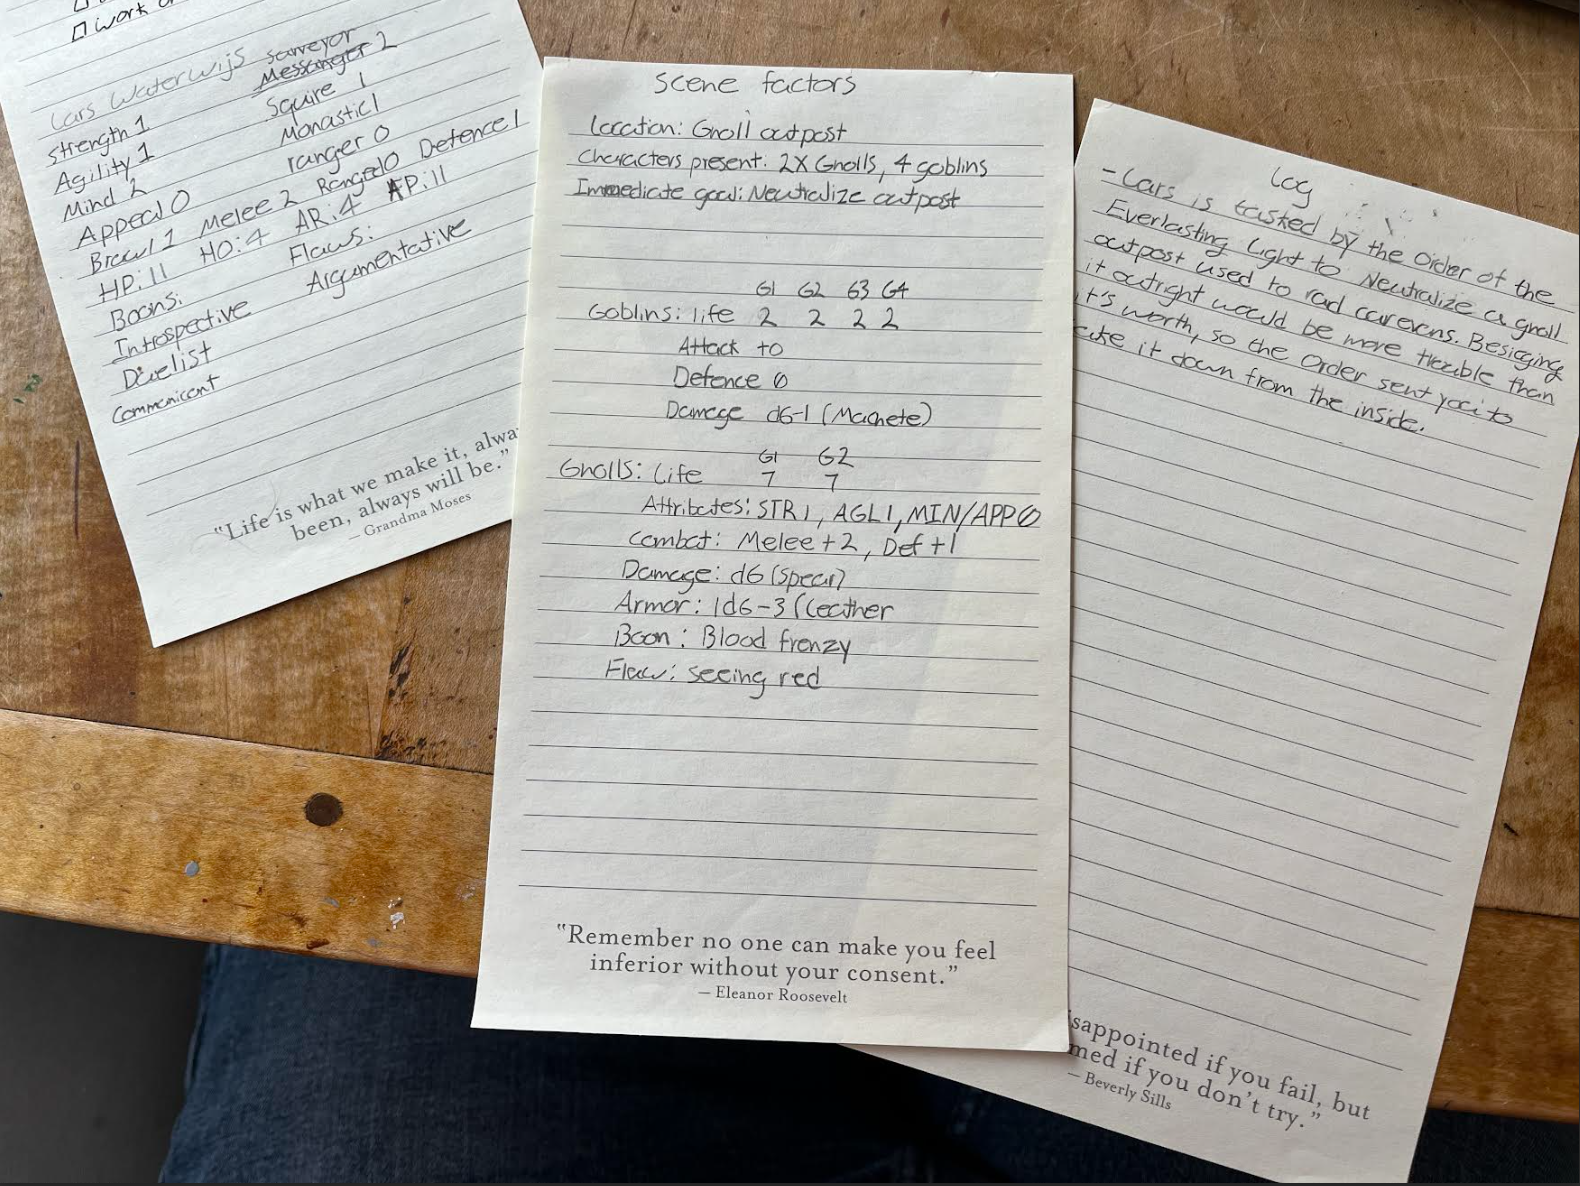 work
Lars Waterwijs surveyor
Messanger 2
Strength 1 Squire 1
Agility 1 Monastic 1
Mind 2 ranger 0
Appeal 0
Brawl 1 Melee 2 Ranged 0 Defence 1
HP: 11 HO: 4 AR: 4 AP: 11
Boons: Flaws:
Introspective Argumentative
Duelist
Commenicent
"Life is what we make it, alwa
been, always will be."
— Grandma Moses
Scene factors
Location: Gnoll outpost
Characters present: 2X Gnolls, 4 goblins
Immediate goal: Neutralize outpost
G1 G2 G3 G4
Goblins: life 2 2 2 2
Attack +0
Defence 0
Damage d6-1 (Machete)
G1 G2
Gnolls: Life 7 7
Attributes: STR 1, AGL 1, MIN/APP 0
Combat: Melee +2, Def +1
Damage: d6 (Spear)
Armor: 1d6-3 (Leather
Boon: Blood frenzy
Flaw: seeing red
"Remember no one can make you feel
inferior without your consent."
— Eleanor Roosevelt
Log
- Lars is tasked by the Order of the
Everlasting Light to Neutralize a gnoll
outpost used to raid carevens. Besieging
it outright would be more trouble than
it's worth, so the Order sent you to
take it down from the inside.
sappointed if you fail, but
med if you don't try."
— Beverly Sills